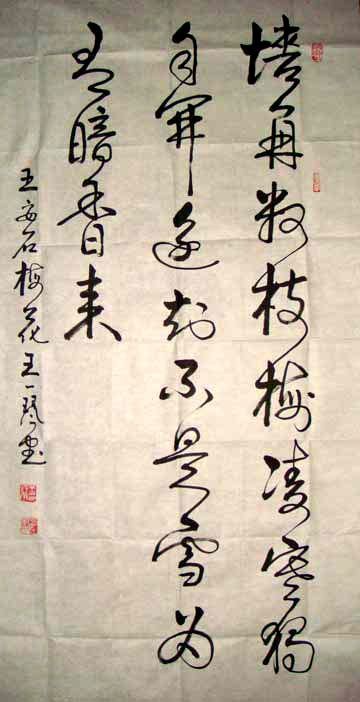 墙角数枝梅凌寒独
自开遥知不是雪为
有暗香来
王安石梅花王一琴书